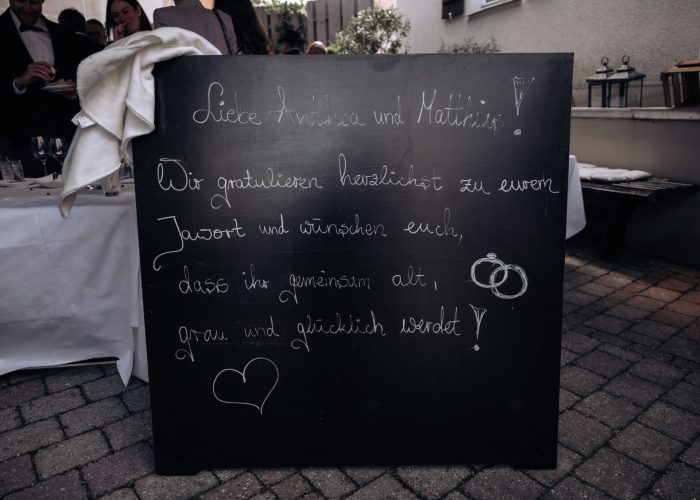 Liebe Andrea und Matthias!
Wir gratulieren herzlichst zu eurem
Jawort und wünschen euch,
dass ihr gemeinsam alt,
grau und glücklich werdet!